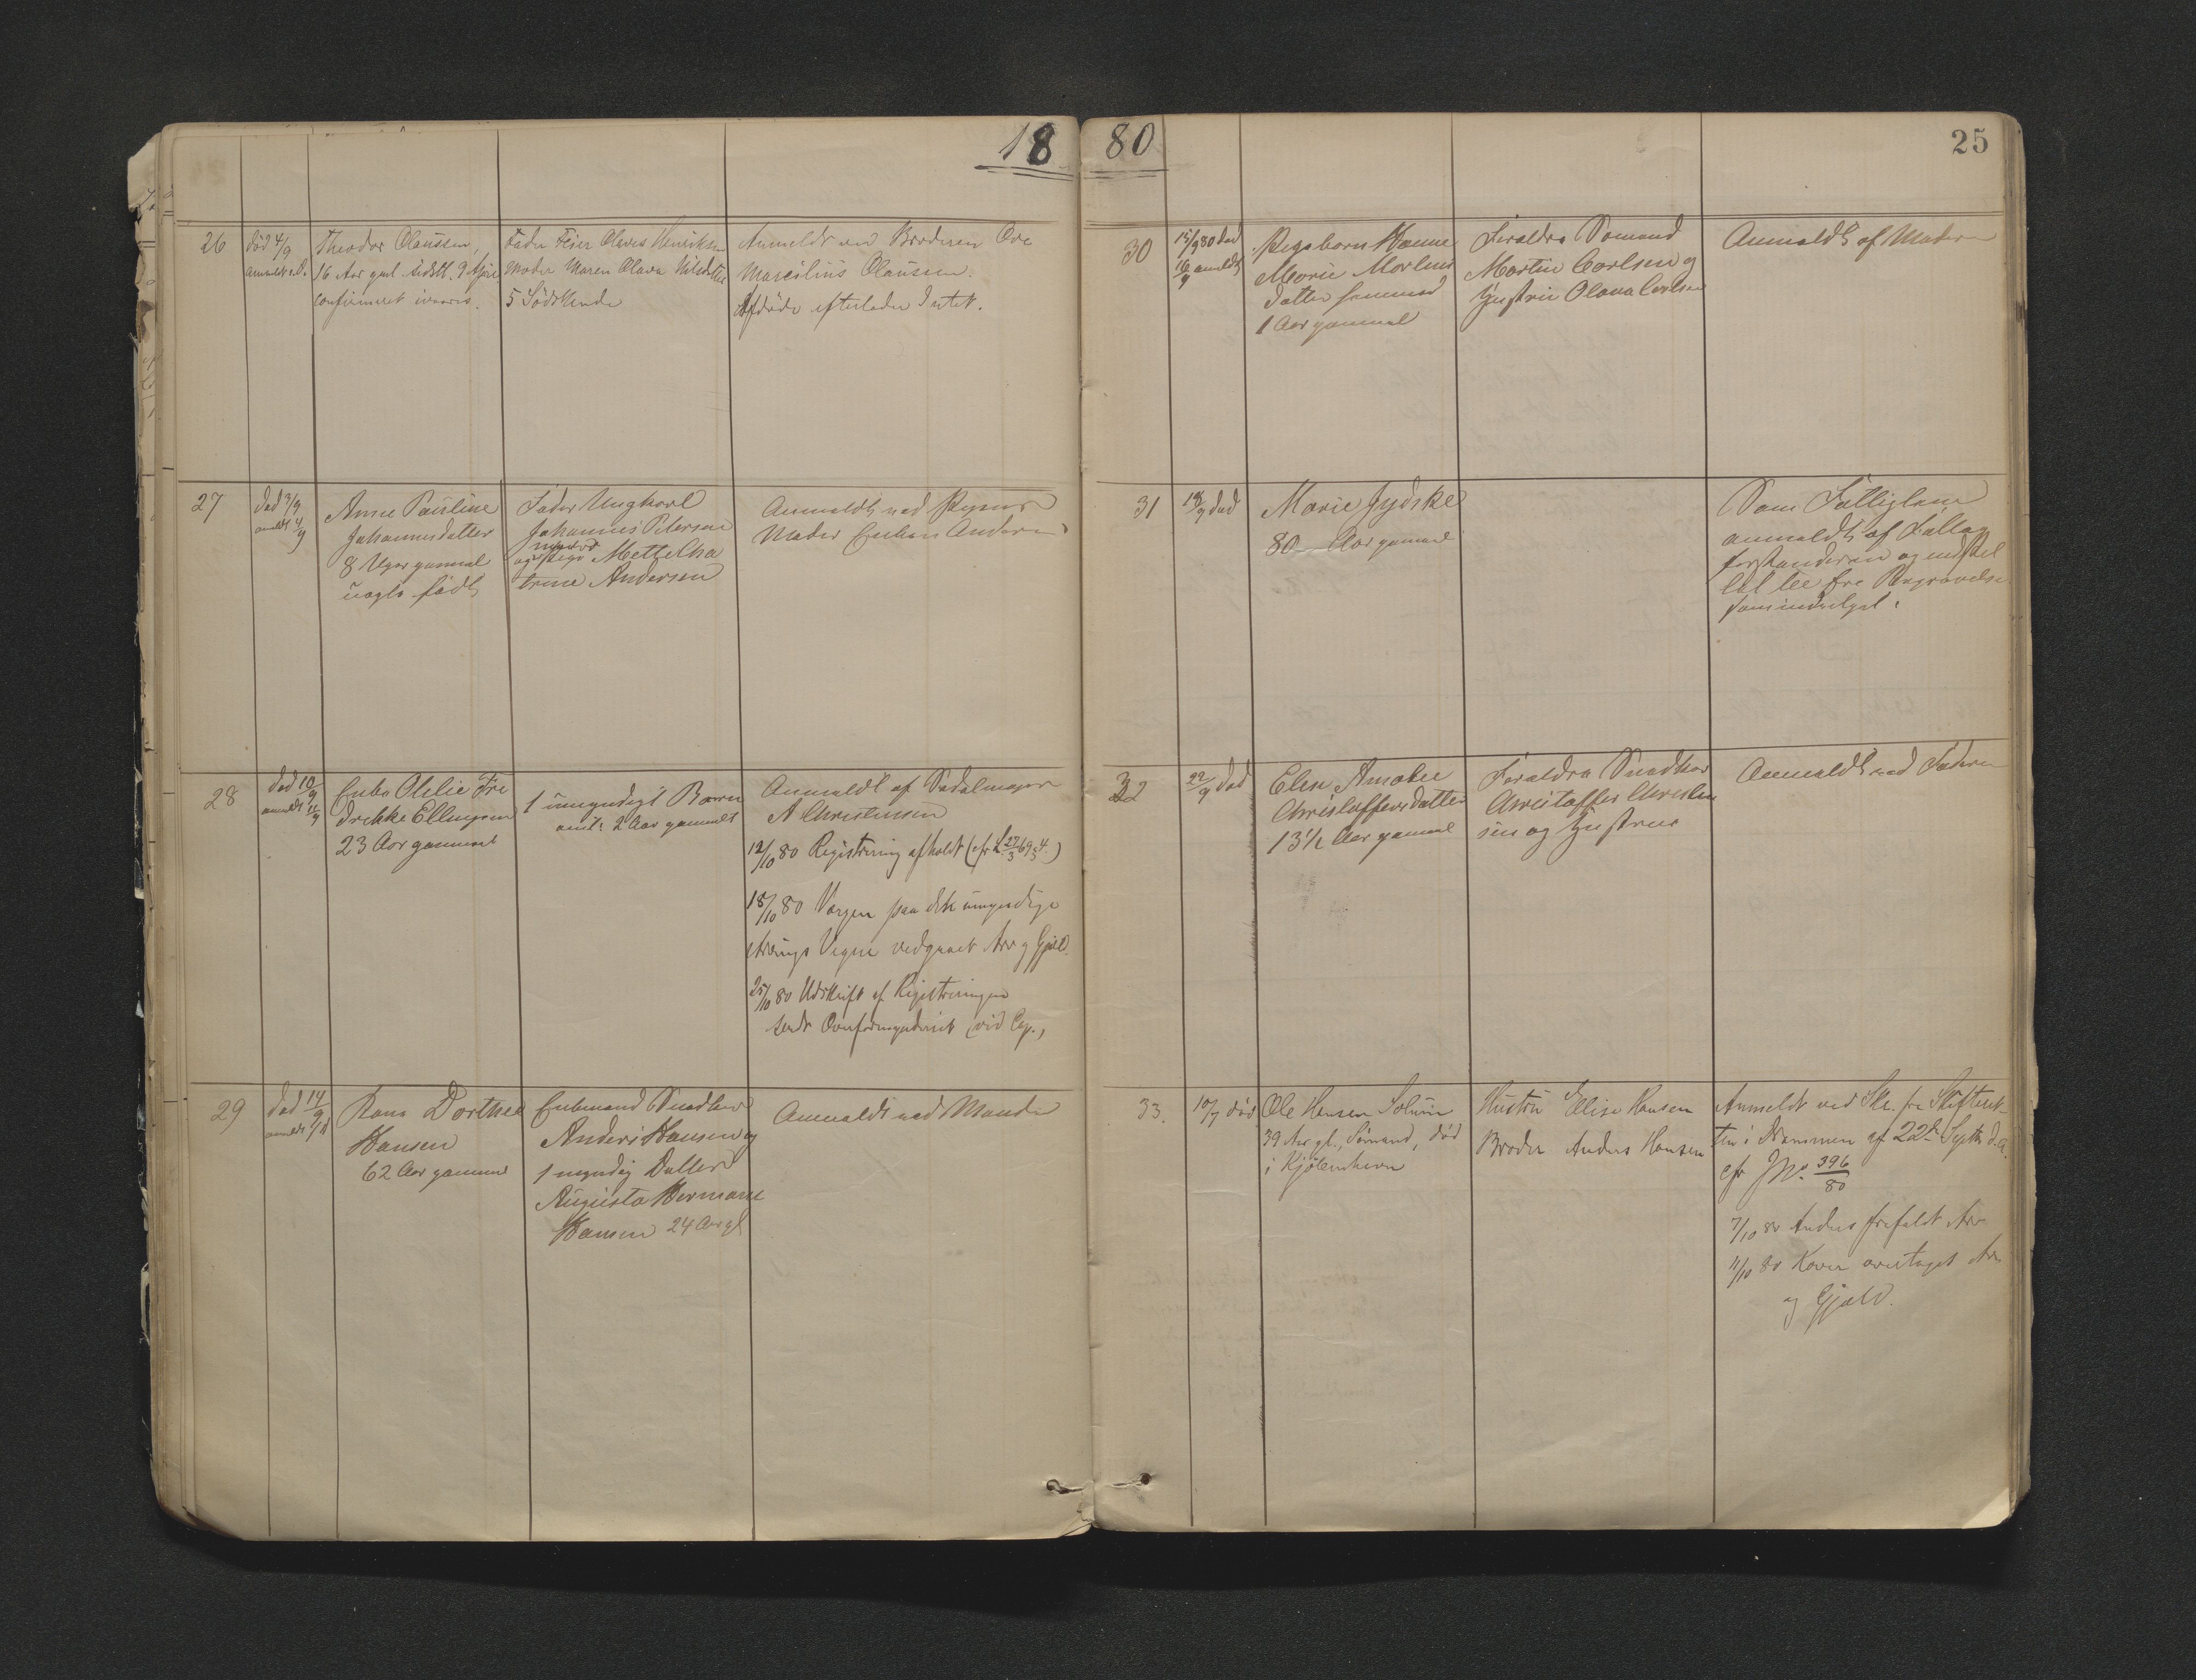 1880
25
26
død 4/9
anmeldt s.D.
Theodor Olaussen,
16 Aar gml. sidstl. 9 April
confirmeret ivaares.
Fader Feier Olaves Henriksen
Moder Maren Olava Nilsdatter
5 Södskende
Anmeldt ved Broderen Ove
Marcilius Olaussen.
Afdöde efterlader Intet.
27
død 3/9
anmeldt 4/9
Anne Pauline
Johannesdatter
8 Uger gammel
uægte födt
Fader Ungkarl
Johannes Petersen
og Pige Mette Cha
trine Andersen
Anmeldt ved Pigens
Moder Enken Andersen
28
død 10/9
anmeldt 11/9
Enke Olelie Fre
drekke Ellingsen
23 Aar gammel
1 umyndigt Barn
2 Aar gammelt
Anmeldt af Sadelmager
A Christensen
12/10 80 Registrering afholdt (cfr L 27/3 69 § 4.)
18/10 80 Vergen paa dets umyndige
Vegne vedgaaet Arv og Gjæld.
25/10 80 Udskrift af Registreringen
sendt Overformynderiet (vid Cop.)
29
død 14/9
anmeldt
Hansen
62 Aar gammel
Enkemand Snedker
Anders Hansen og
1 myndig Datter
Augusta Hermane
Hansen 24 Aar gl
Anmeldt ved Manden
30
15/9 80 død
16/9 anmeldt
Pigebarn Hanne
Marie Martins
datter
1 Aar gammel
Foraldre Sømand
Martin Carlsen og
Hustru Olava Carlsen
Anmeldt af Moderen
31
18/9 død
Marie Jydske
80 Aar gammel
Som Fattiglem
anmeldt af Fattig
forstanderen og
fri Begravelse
32
22/9 død
Elen Amalie
Christoffersdatter
13½ Aar gammel
Foraldre Snedker
Christoffer Christen
sen og Hustrue
Anmeldt ved Faderen
33.
10/7 død
Ole Hansen Solum
39 Aar gl., Sömand, død
i Kjøbenhavn
Hustru Elise Hansen
Broder Anders Hansen
Anmeldt ved Skr. fra Skifteret-
ten i Drammen af 22de Septbr d.A.
cfr JNo. 396/80
7/10 80 Anders frafaldt Arv
11/10 80 Konen overtaget Arv
og Gjæld.